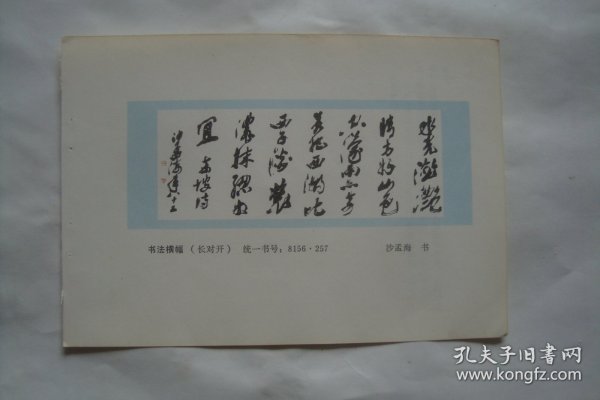 水光瀲灩
晴方好山色
空濛雨亦奇
若把西湖比
西子澹粧
濃抹總相
宜 東坡詩
沙孟海
书法横幅（长对开） 统一书号：8156·257 沙孟海 书
孔夫子旧書网
www.kongfz.com